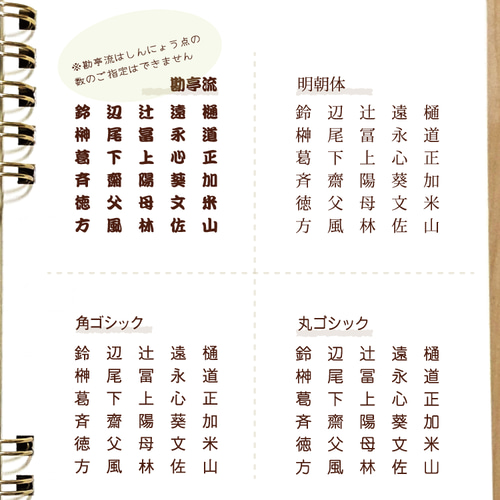 ※勘亭流はしんにょう点の
数のご指定はできません
勘亭流
鈴 辺 辻 遠 樋
榊 尾 冨 永 道
葛 下 上 心 正
斉 齋 陽 葵 加
徳 父 母 文 米
方 風 林 佐 山
明朝体
鈴 辺 辻 遠 樋
榊 尾 冨 永 道
葛 下 上 心 正
斉 齋 陽 葵 加
徳 父 母 文 米
方 風 林 佐 山
角ゴシック
鈴 辺 辻 遠 樋
榊 尾 冨 永 道
葛 下 上 心 正
斉 齋 陽 葵 加
徳 父 母 文 米
方 風 林 佐 山
丸ゴシック
鈴 辺 辻 遠 樋
榊 尾 冨 永 道
葛 下 上 心 正
斉 齋 陽 葵 加
徳 父 母 文 米
方 風 林 佐 山